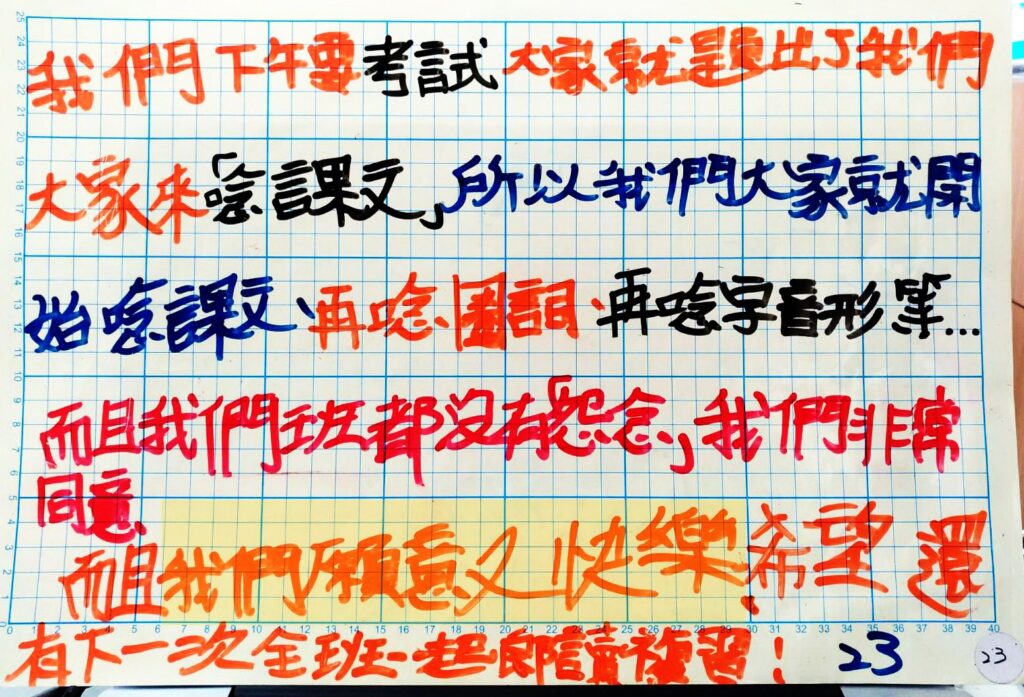 我們下午要考試大家就題出了我們
大家來「唸課文」所以我們大家就開
始唸課文、再唸圈詞、再唸字音形等...
而且我們班都沒有「怨念」我們非常
同意、
而且我們願意又快樂.希望還
有下一次全班一起朗讀複習！ 23
23